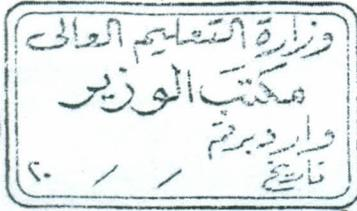 وزارة التعليم العالى
مكتب الوزير
وارد برقم
تاريخ / / ٢٠